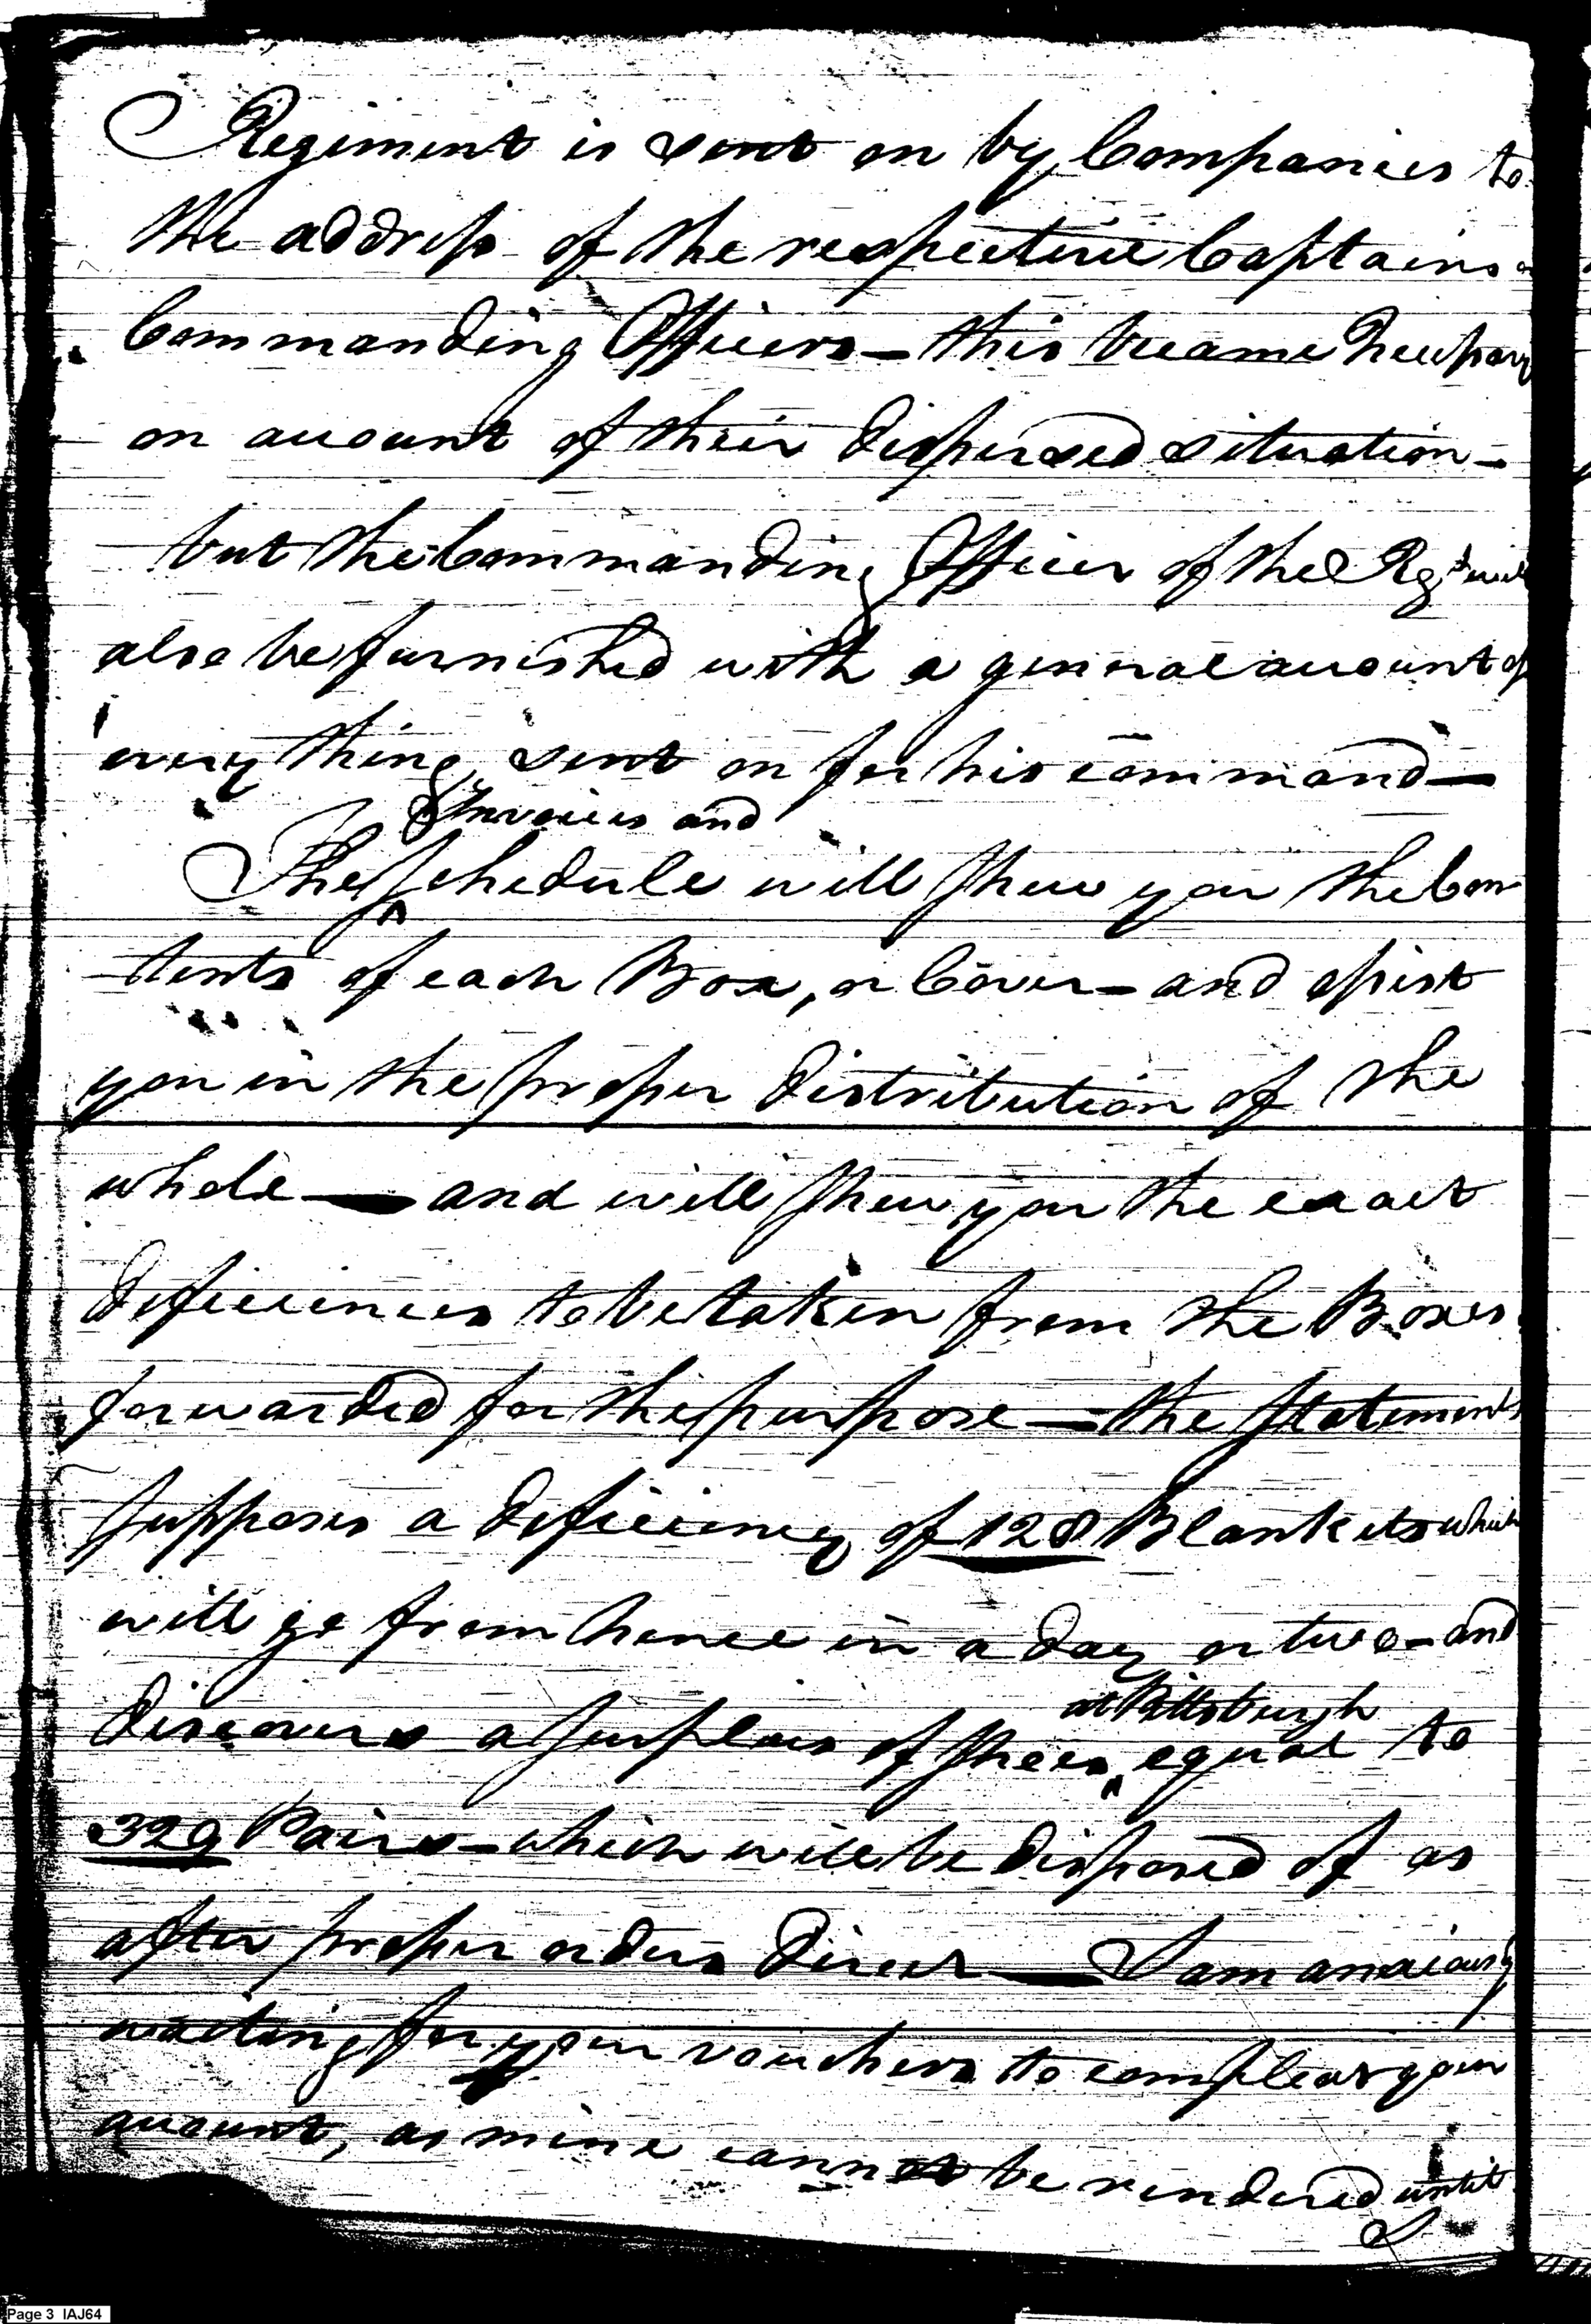 Regiment is sent on by Companies to
the address of the respective Captains or
Commanding Officers — this became Necessary
on account of their dispersed situation —
but the Commanding Officer of the Regt will
also be furnished with a general account of
every thing sent on for his command —
Invoices and
The Schedule will shew you the Con
tents of each Box, or Cover — and assist
you in the proper distribution of the
whole — and will shew you the exact
deficiencies to be taken from the Boxes
forwarded for the purpose — the Statements
supposes a deficiency of 128 Blankets which
will go from hence in a day or two — and
at Pittsburgh
discovers a surplus of shoes equal to
329 Pairs — which will be disposed of as
after proper orders direct — I am anxiously
waiting for your vouchers to compleat your
account, as mine cannot be rendered until
I
Page 3 IAJ64